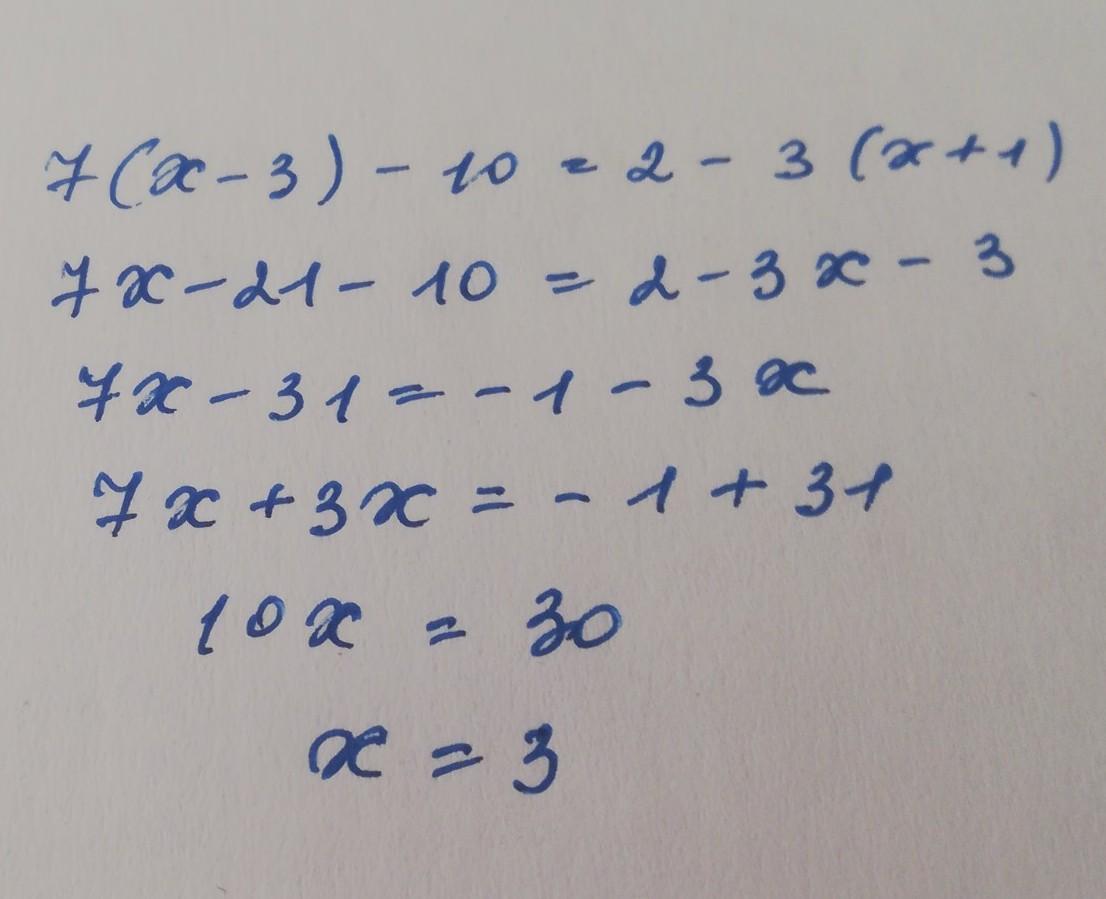 7(x-3)-10=2-3(x+1)
7x-21-10=2-3x-3
7x-31=-1-3x
7x+3x=-1+31
10x=30
x=3